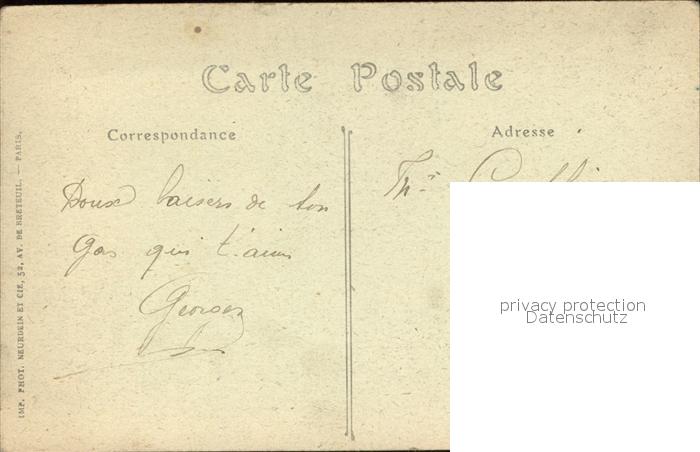 Carte Postale
Correspondance
Adresse
Doux baisers de ton
gas qui t'aime
Georges
IMP. PHOT. NEURDEIN ET CIE, 52, AV. DE BRETEUIL. — PARIS.
privacy protection
Datenschutz